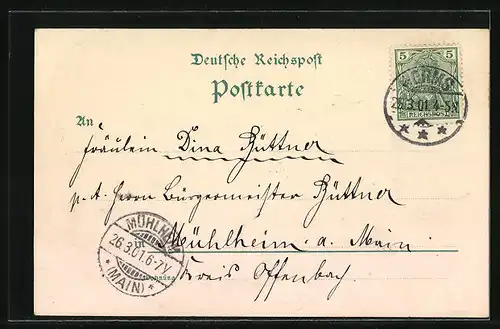 Deutsche Reichspost
Postkarte
5 5
REICHSPOST
WORMS
25.3.01.4-5N
An
Fräulein Dina Büttner
p. A. Herrn Bürgermeister Büttner
in Mühlheim a. Main
Kreis Offenbach
MÜHLHEIM
26.3.01.6-7V
*(MAIN)*